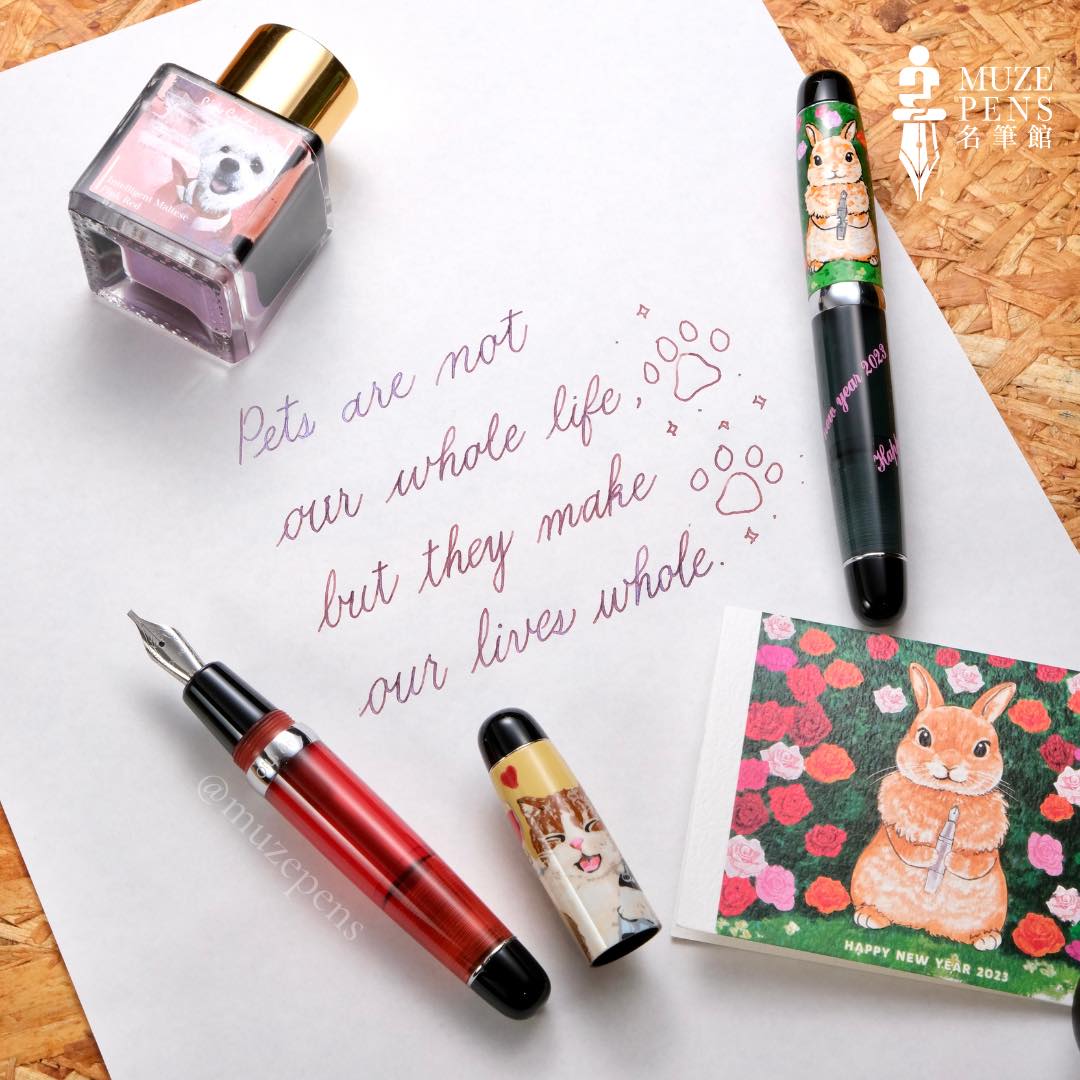 MUZE
PENS
名筆館
Intelligent Maltese
Pink Red
Pets are not
our whole life,
but they make
our lives whole.
year 2023
Happ
@muzepens
HAPPY NEW YEAR 2023